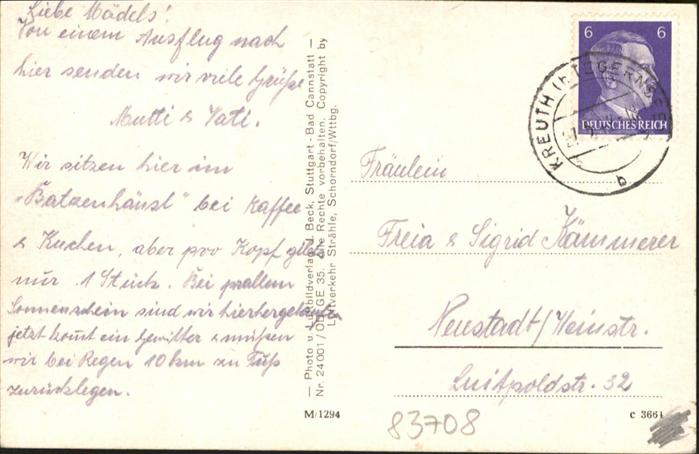 Liebe Mädels!
Von einem Ausflug nach
hier senden wir viele Grüße
Mutti & Vati.
Wir sitzen hier im
"Batzenhäusl" bei Kaffee
& Kuchen, aber pro Kopf
nur 1 Stück. Bei prallem
Sonnenschein sind wir hierhergelaufen
jetzt kommt ein Gewitter & müßen
wir bei Regen 10 km zu Fuß
zurücklegen.
— Photo u. Luftbildverlag A. Beck, Stuttgart - Bad Cannstatt —
Nr. 24001 / 35. Alle Rechte vorbehalten. Copyright by
Luftverkehr Strähle, Schorndorf/Wttbg.
6 6
DEUTSCHES REICH
KREUTH TEGERNSEE
b
Fräulein
Freia & Sigrid Kämmerer
Neustadt/Weinstr.
Luitpoldstr. 32
M/1294
83708
c 3664